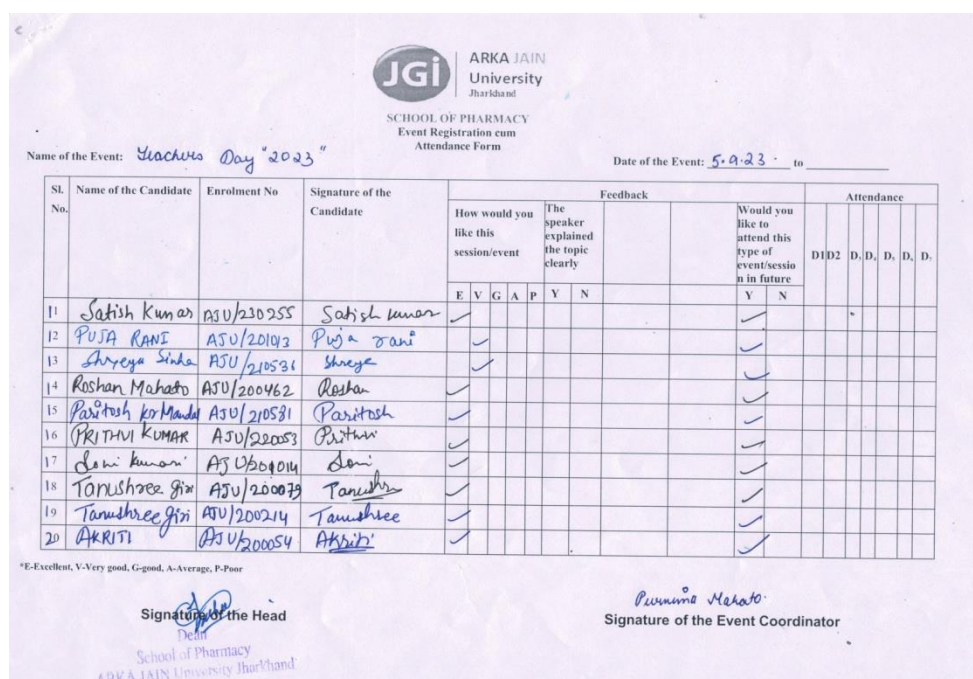 JGi ARKA JAIN
University
Jharkhand
SCHOOL OF PHARMACY
Event Registration cum
Attendance Form
Name of the Event: Teachers Day "2023"
Date of the Event: 5.9.23 to
Sl. No. Name of the Candidate Enrolment No Signature of the Candidate Feedback Attendance
How would you like this session/event The speaker explained the topic clearly Would you like to attend this type of event/session in future D1 D2 D, D, D, D, D,
E V G A P Y N Y N
11 Satish Kumar AJU/230255 Satish kumar
12 PUJA RANI AJU/201013 Puja rani
13 Shreya Sinha AJU/210536 Shreya
14 Roshan Mahato AJU/200462 Roshan
15 Paritosh kr Mandal AJU/210531 Paritosh
16 PRITHVI KUMAR AJU/220053 Prithvi
17 Soni kumari Soni
18 Tanushree giri AJU/200079 Tanushree
19 Tanushree giri AJU/200214 Tanushree
20 AKRITI AJU/200054 Akriti
*E-Excellent, V-Very good, G-good, A-Average, P-Poor
Signature of the Head
Dean
School of Pharmacy
ARKA JAIN University Jharkhand
Purnima Mahato
Signature of the Event Coordinator